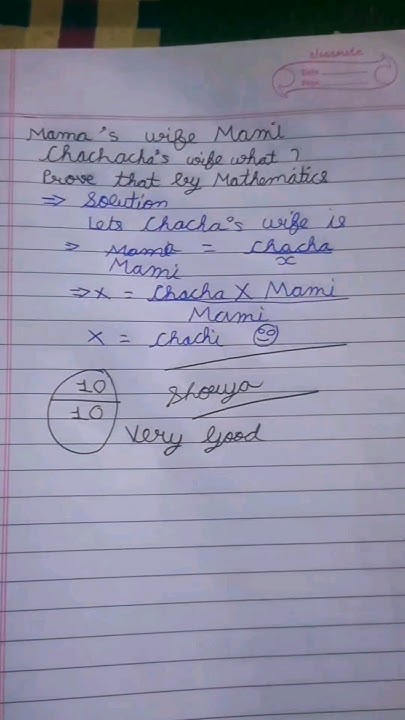 classmate
Date
Page
Mama's wife Mami
Chachacha's wife what ?
Prove that by Mathematics
⇒ Solution
Lets Chacha's wife is
⇒ Mama = Chacha
Mami x
⇒ x = Chacha X Mami
Mami
x = chachi
10
10
Shourya
Very Good